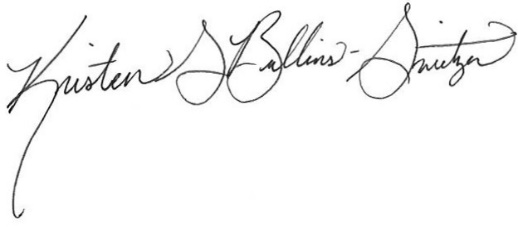 Kristen G Bullins-Smitzer